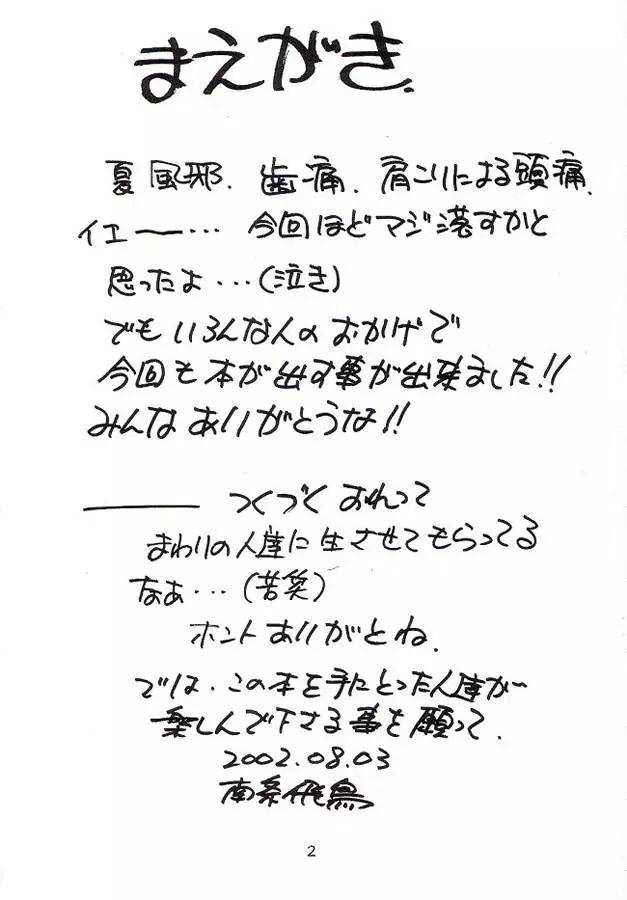 まえがき.
夏風邪.歯痛.肩こりによる頭痛.
イエー──…今回ほどマジ落すかと
思ったよ…(泣き)
でもいろんな人のおかげで
今回も本が出す事が出来ました!!
みんなありがとうな!!
────つくづくおれって
まわりの人達に生させてもらってる
なぁ…(苦笑)
ホントありがとね.
では.この本を手にとった人達が
楽しんで下さる事を願って.
2002.08.03
南条飛鳥
2